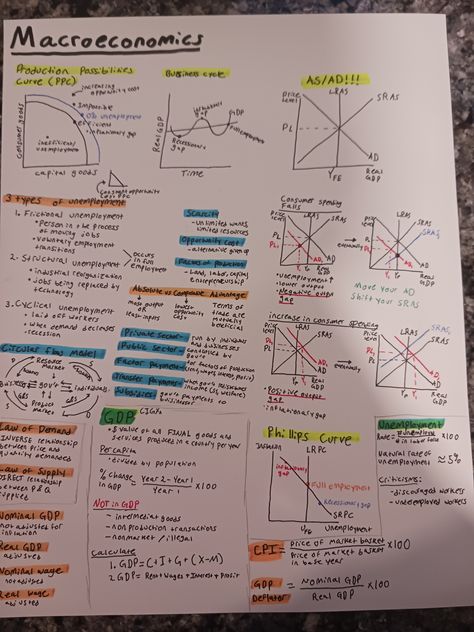 Macroeconomics
Production Possibilities
Curve (PPC)
increasing
opportunity cost
Impossible
0% unemployment
efficient
inflationary gap
inefficient/
unemployment
consumer goods
capital goods
constant opportunity
cost PPC
Business cycle
Real GDP
Time
inflationary
gap
GDP
full employment
Recessionary
gap
AS/AD!!!
Price
level
LRAS
SRAS
PL
AD
YFE
Real
GDP
3 types of unemployment
1. Frictional unemployment
• Person in the process
of moving jobs
• Voluntary employment
transitions
2. Structural unemployment
• industrial reorganization
• Jobs being replaced by
technology
occurs
in full
employment
3. Cyclical unemployment
• laid off workers
• when demand decreases
recession
Scarcity
- unlimited wants,
limited resources
Opportunity cost
- alternative given up
Factors of production
- Land, labor, capital,
entrepreneurship
Absolute vs Comparative Advantage
most output
or
least inputs
lowest
opportunity
cost
Terms of
trade are
mutually
beneficial
Private sector
run by individuals
and businesses
Public sector
controlled by
govt
Factor payments
for factors of production
(rent, wages, interest, profit)
Transfer payments
when govt redistributes
income (SS, welfare)
Subsidies
govt payments to
businesses
Consumer spending
Falls
Price
level
LRAS
SRAS
PL
PL1
AD
AD1
Y1
YF
Real
GDP
eventually
Price
level
LRAS
SRAS
SRAS1
PL
AD
Real
GDP
• unemployment ↑
• lower output
• Negative output
gap
Move your AD
Shift your SRAS
increase in consumer spending
Price
level
LRAS
SRAS
PL1
PL
AD1
AD
Real
GDP
eventually
LRAS
SRAS1
SRAS
Real
GDP
• Positive output
gap
• inflationary gap
Circular Flow Model
Resource
Market
Businesses
govt
Product
Market
Law of Demand
INVERSE relationship
between price and
quantity demanded
Law of Supply
DIRECT relationship
between P & Q
supplied
Nominal GDP
not adjusted for
inflation
Real GDP
adjusted
Nominal wage
not adjusted
Real wage
adjusted
GDP
CIGXn
• $ value of all FINAL goods and
services produced in a country per year
Per capita
• divided by population
% change
in GDP
= Year 2 - Year 1 / Year 1 × 100
NOT IN GDP
- intermediate goods
- non production transactions
- nonmarket / illegal
Calculate
1. GDP = C + I + G + (X-M)
2. GDP = Rent + Wages + Interest + Profit
Phillips Curve
Inflation
LRPC
inflationary
gap
Full employment
Recessionary gap
SRPC
Unemployment
Unemployment
Rate = # unemployed / # in labor force × 100
Natural rate of
unemployment ≈ 5%
Criticisms:
- discouraged workers
- underemployed workers
CPI = Price of market basket / Price of market basket in base year × 100
GDP
Deflator
= Nominal GDP / Real GDP × 100